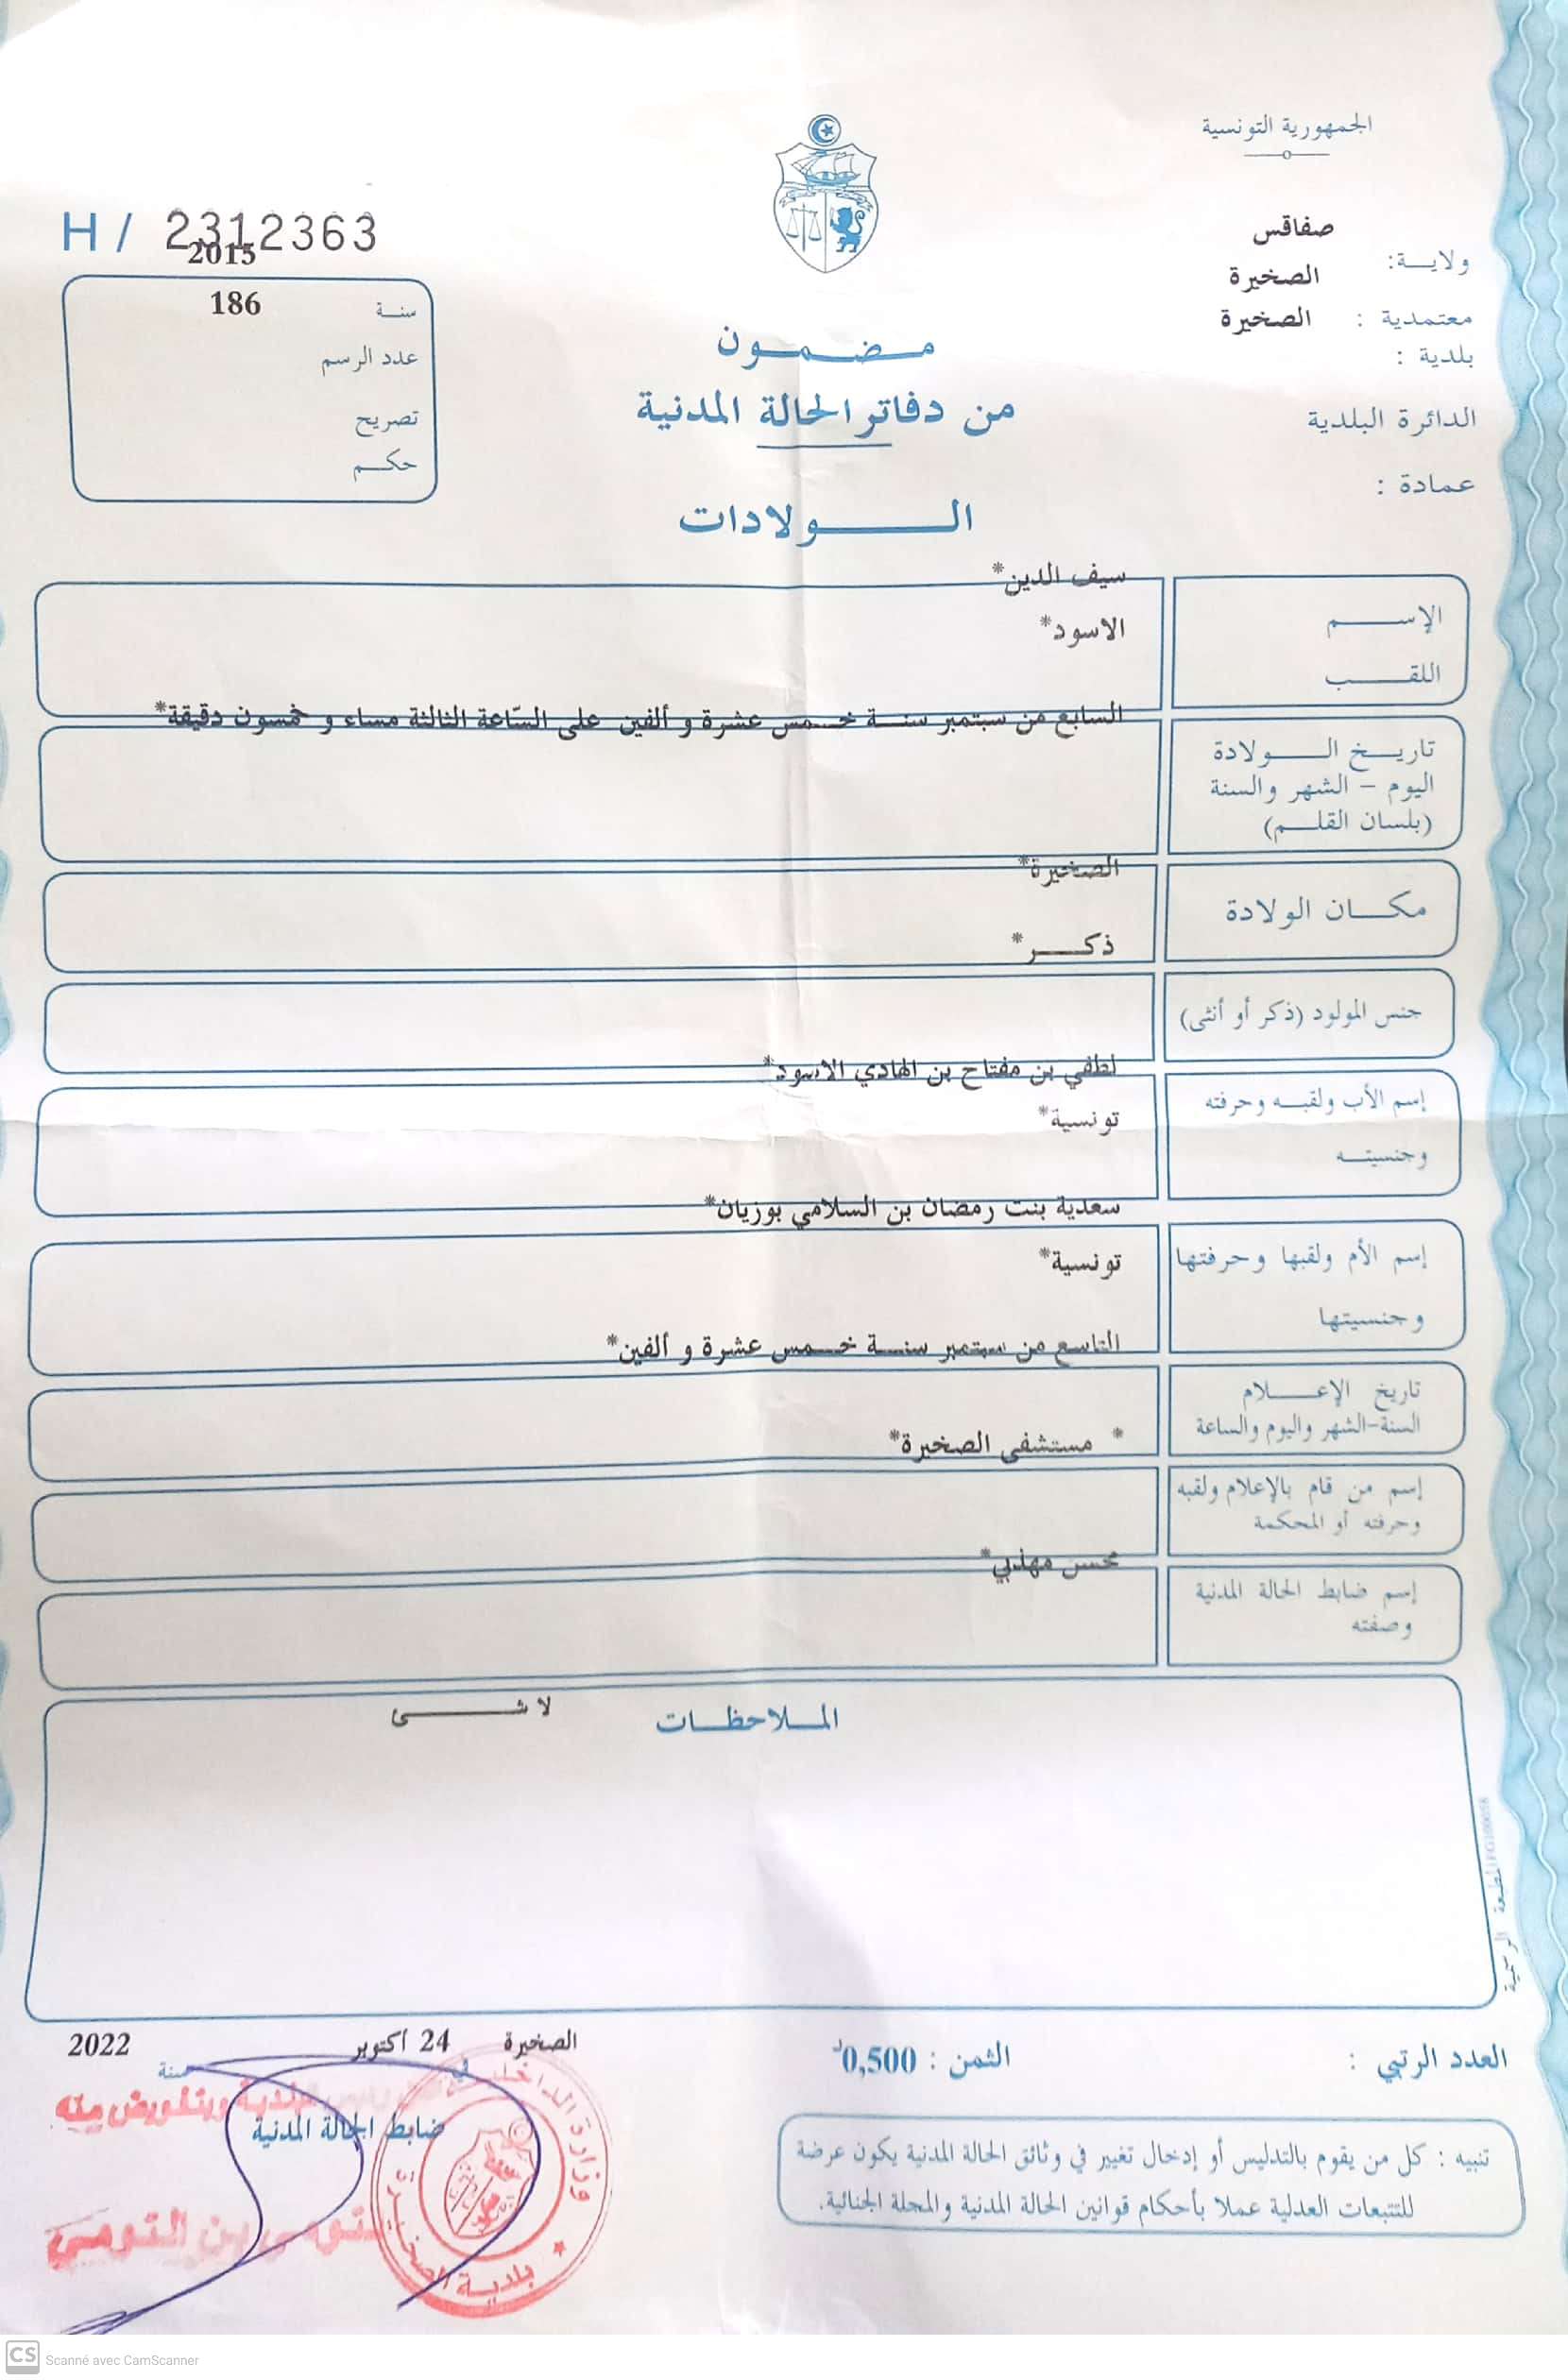 الجمهورية التونسية
H / 2312363
2015
صفاقس
ولايـــة:
الصخيرة
186
سنــة
معتمدية : الصخيرة
بلدية :
عدد الرسم
مـــضـــمـــون
من دفاتر الحالة المدنية
الدائرة البلدية
تصريح
حكــم
عمادة :
الـــــولادات
سيف الدين*
الإســـــم
الاسود*
اللقـــــب
السابع من سبتمبر سنـــة خـــمس عشرة و ألفين على السّاعة الثالثة مساء و خمسون دقيقة*
تاريـــخ الـــــولادة
اليوم - الشهر والسنة
(بلسان القلـــم)
الصخيرة*
مكـــان الولادة
ذكـــر*
جنس المولود (ذكر أو أنثى)
لطفي بن مفتاح بن الهادي الاسود*
إسم الأب ولقبــه وحرفته
تونسية*
وجنسيتــه
سعدية بنت رمضان بن السلامي بوزيان*
إسم الأم ولقبها وحرفتها
تونسية*
وجنسيتها
التاسع من سبتمبر سنـــة خـــمس عشرة و ألفين*
تاريخ الإعـــــلام
السنة-الشهر واليوم والساعة
* مستشفى الصخيرة*
إسم من قام بالإعلام ولقبه
وحرفته أو المحكمة
محسن مهذبي*
إسم ضابط الحالة المدنية
وصفته
الملاحظـــات
لا شـــــئ
المطبعة الرسمية
الصخيرة في 24 اكتوبر سنة 2022
العدد الرتبي :
الثمن : 0,500د
وبتفويض منه
ضابط الحالة المدنية
بن التومي
وزارة الداخلية
بلدية الصخيرة
تنبيه : كل من يقوم بالتدليس أو إدخال تغيير في وثائق الحالة المدنية يكون عرضة
للتتبعات العدلية عملا بأحكام قوانين الحالة المدنية والمجلة الجنائية.
CS Scanné avec CamScanner